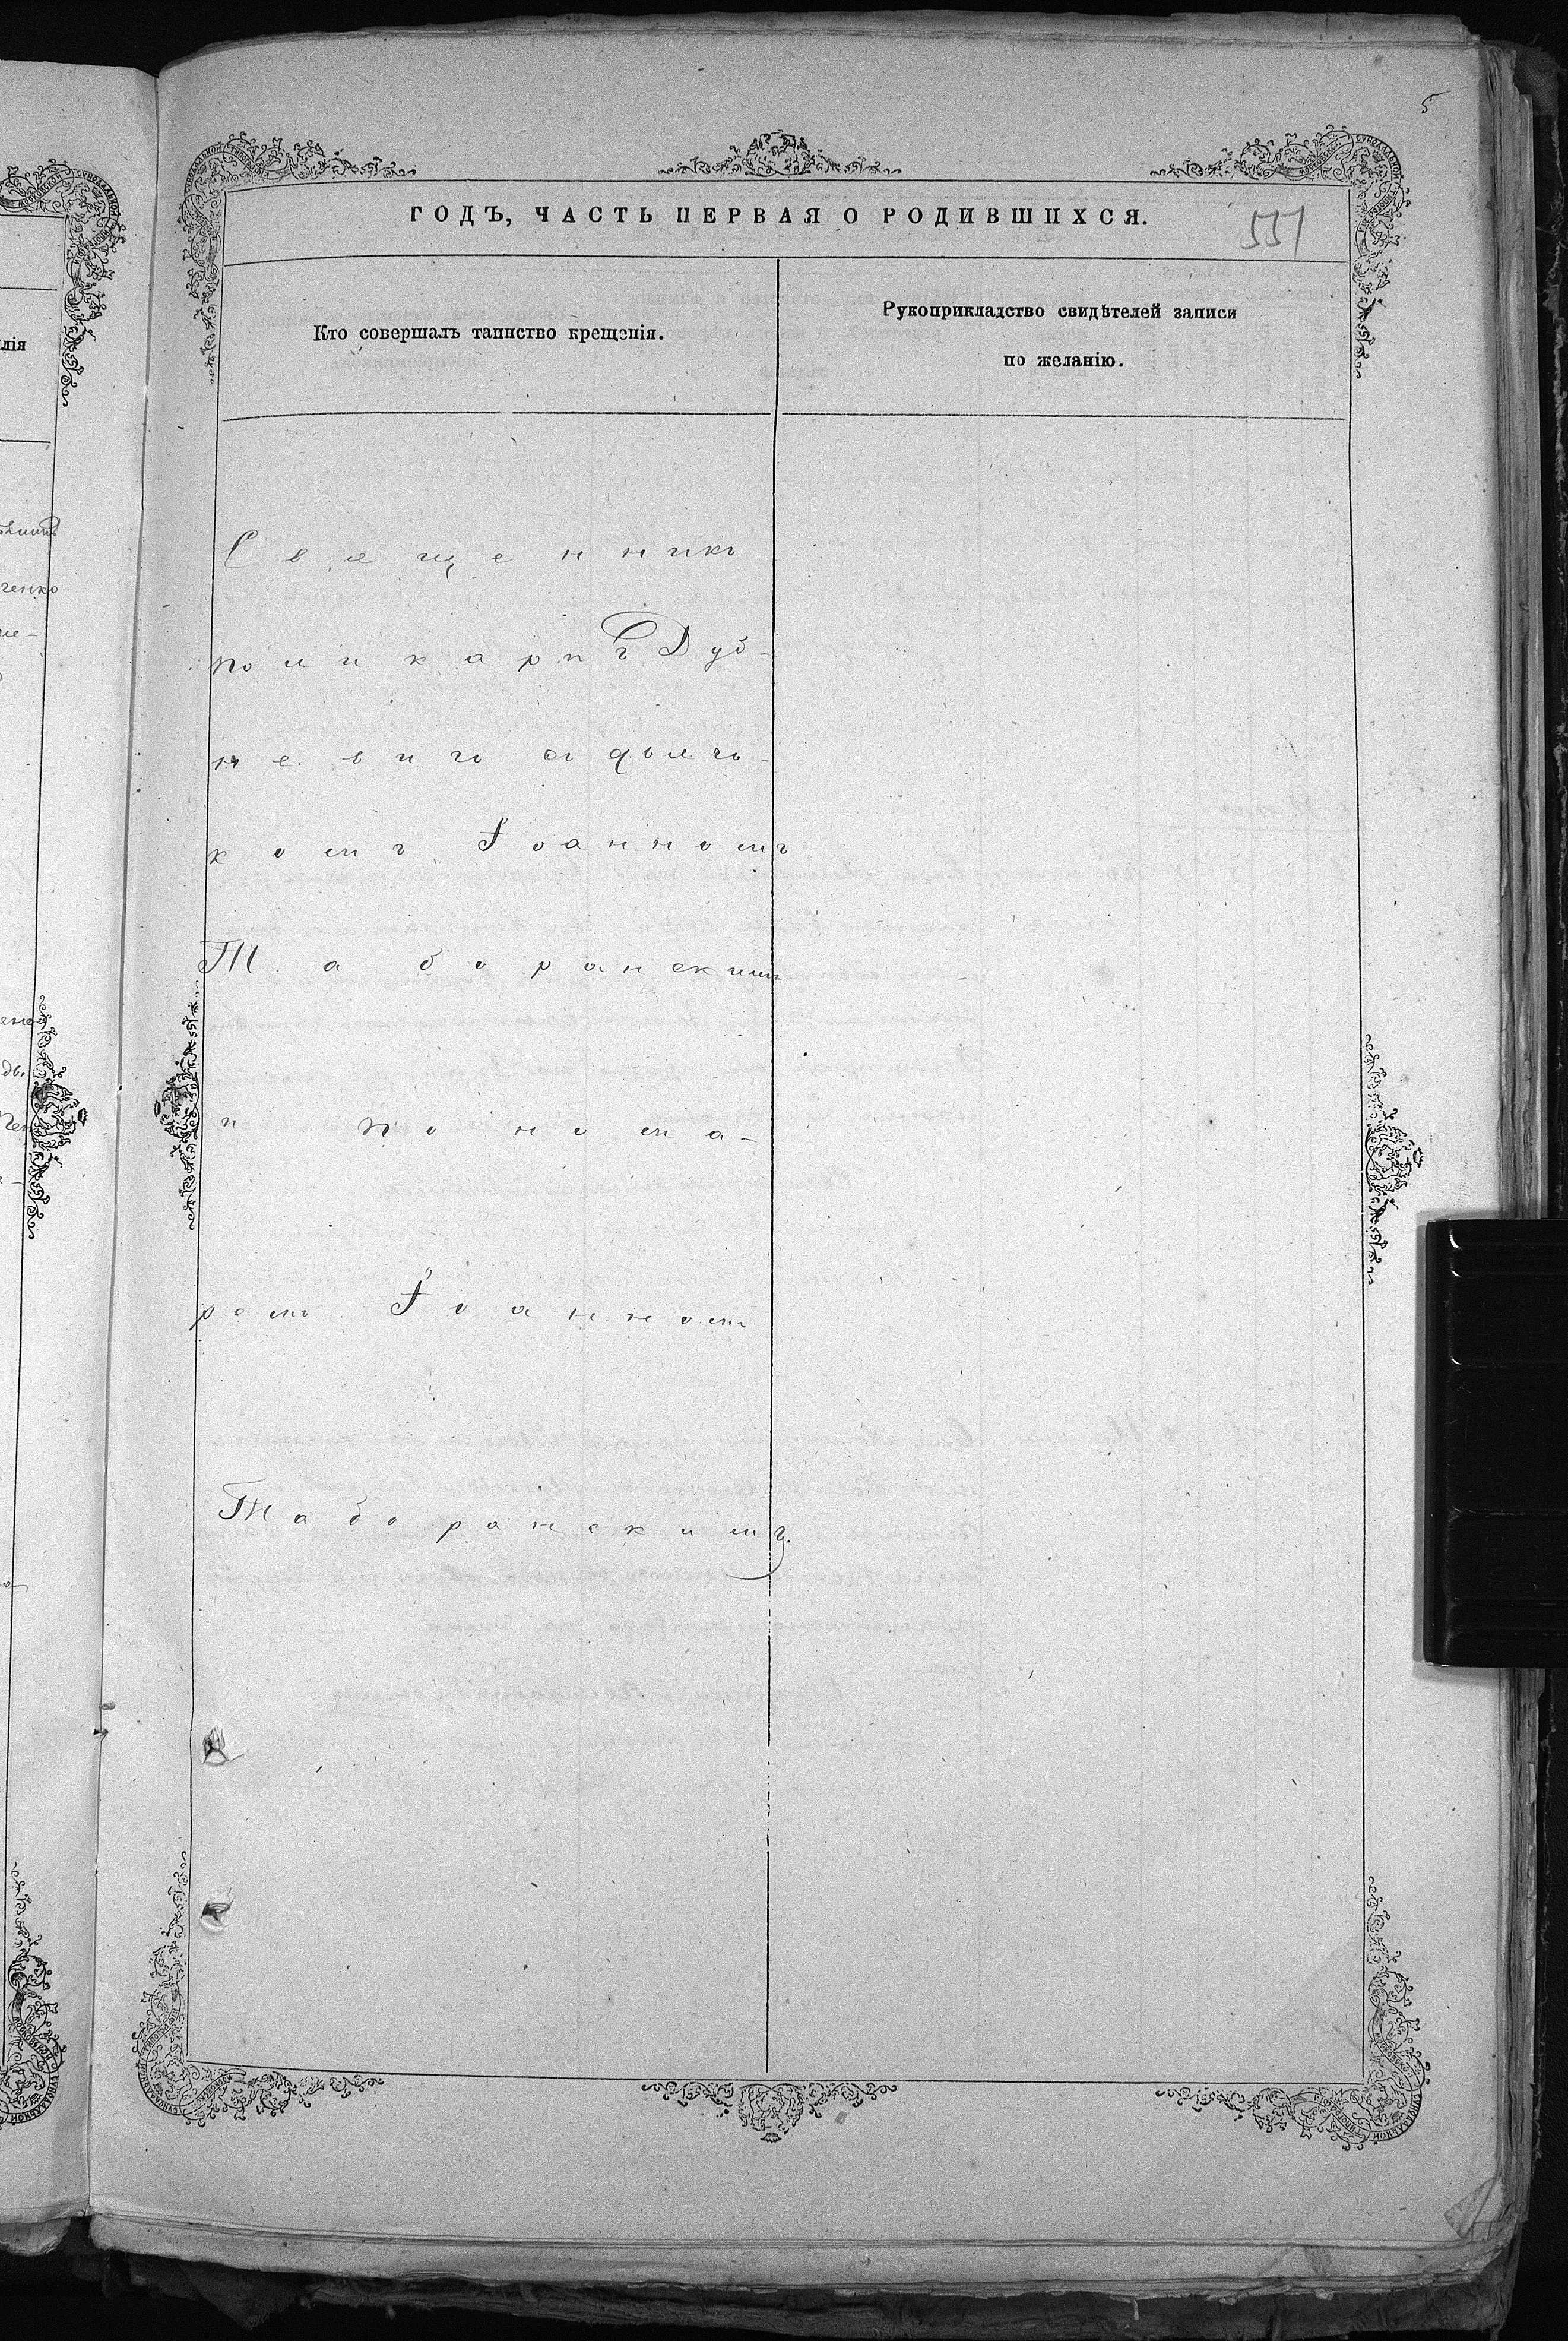 5
ГОДЪ, ЧАСТЬ ПЕРВАЯ О РОДИВШИХСЯ.
551
Кто совершалъ таинство крещенія.
Рукоприкладство свидѣтелей записи
по желанію.
Священникъ
Поликарпъ Дуб-
невичъ съ дьяч-
комъ Іоанномъ
Таборанскимъ
и понома-
ремъ Іоанномъ
Таборанскимъ.
лія
ченко